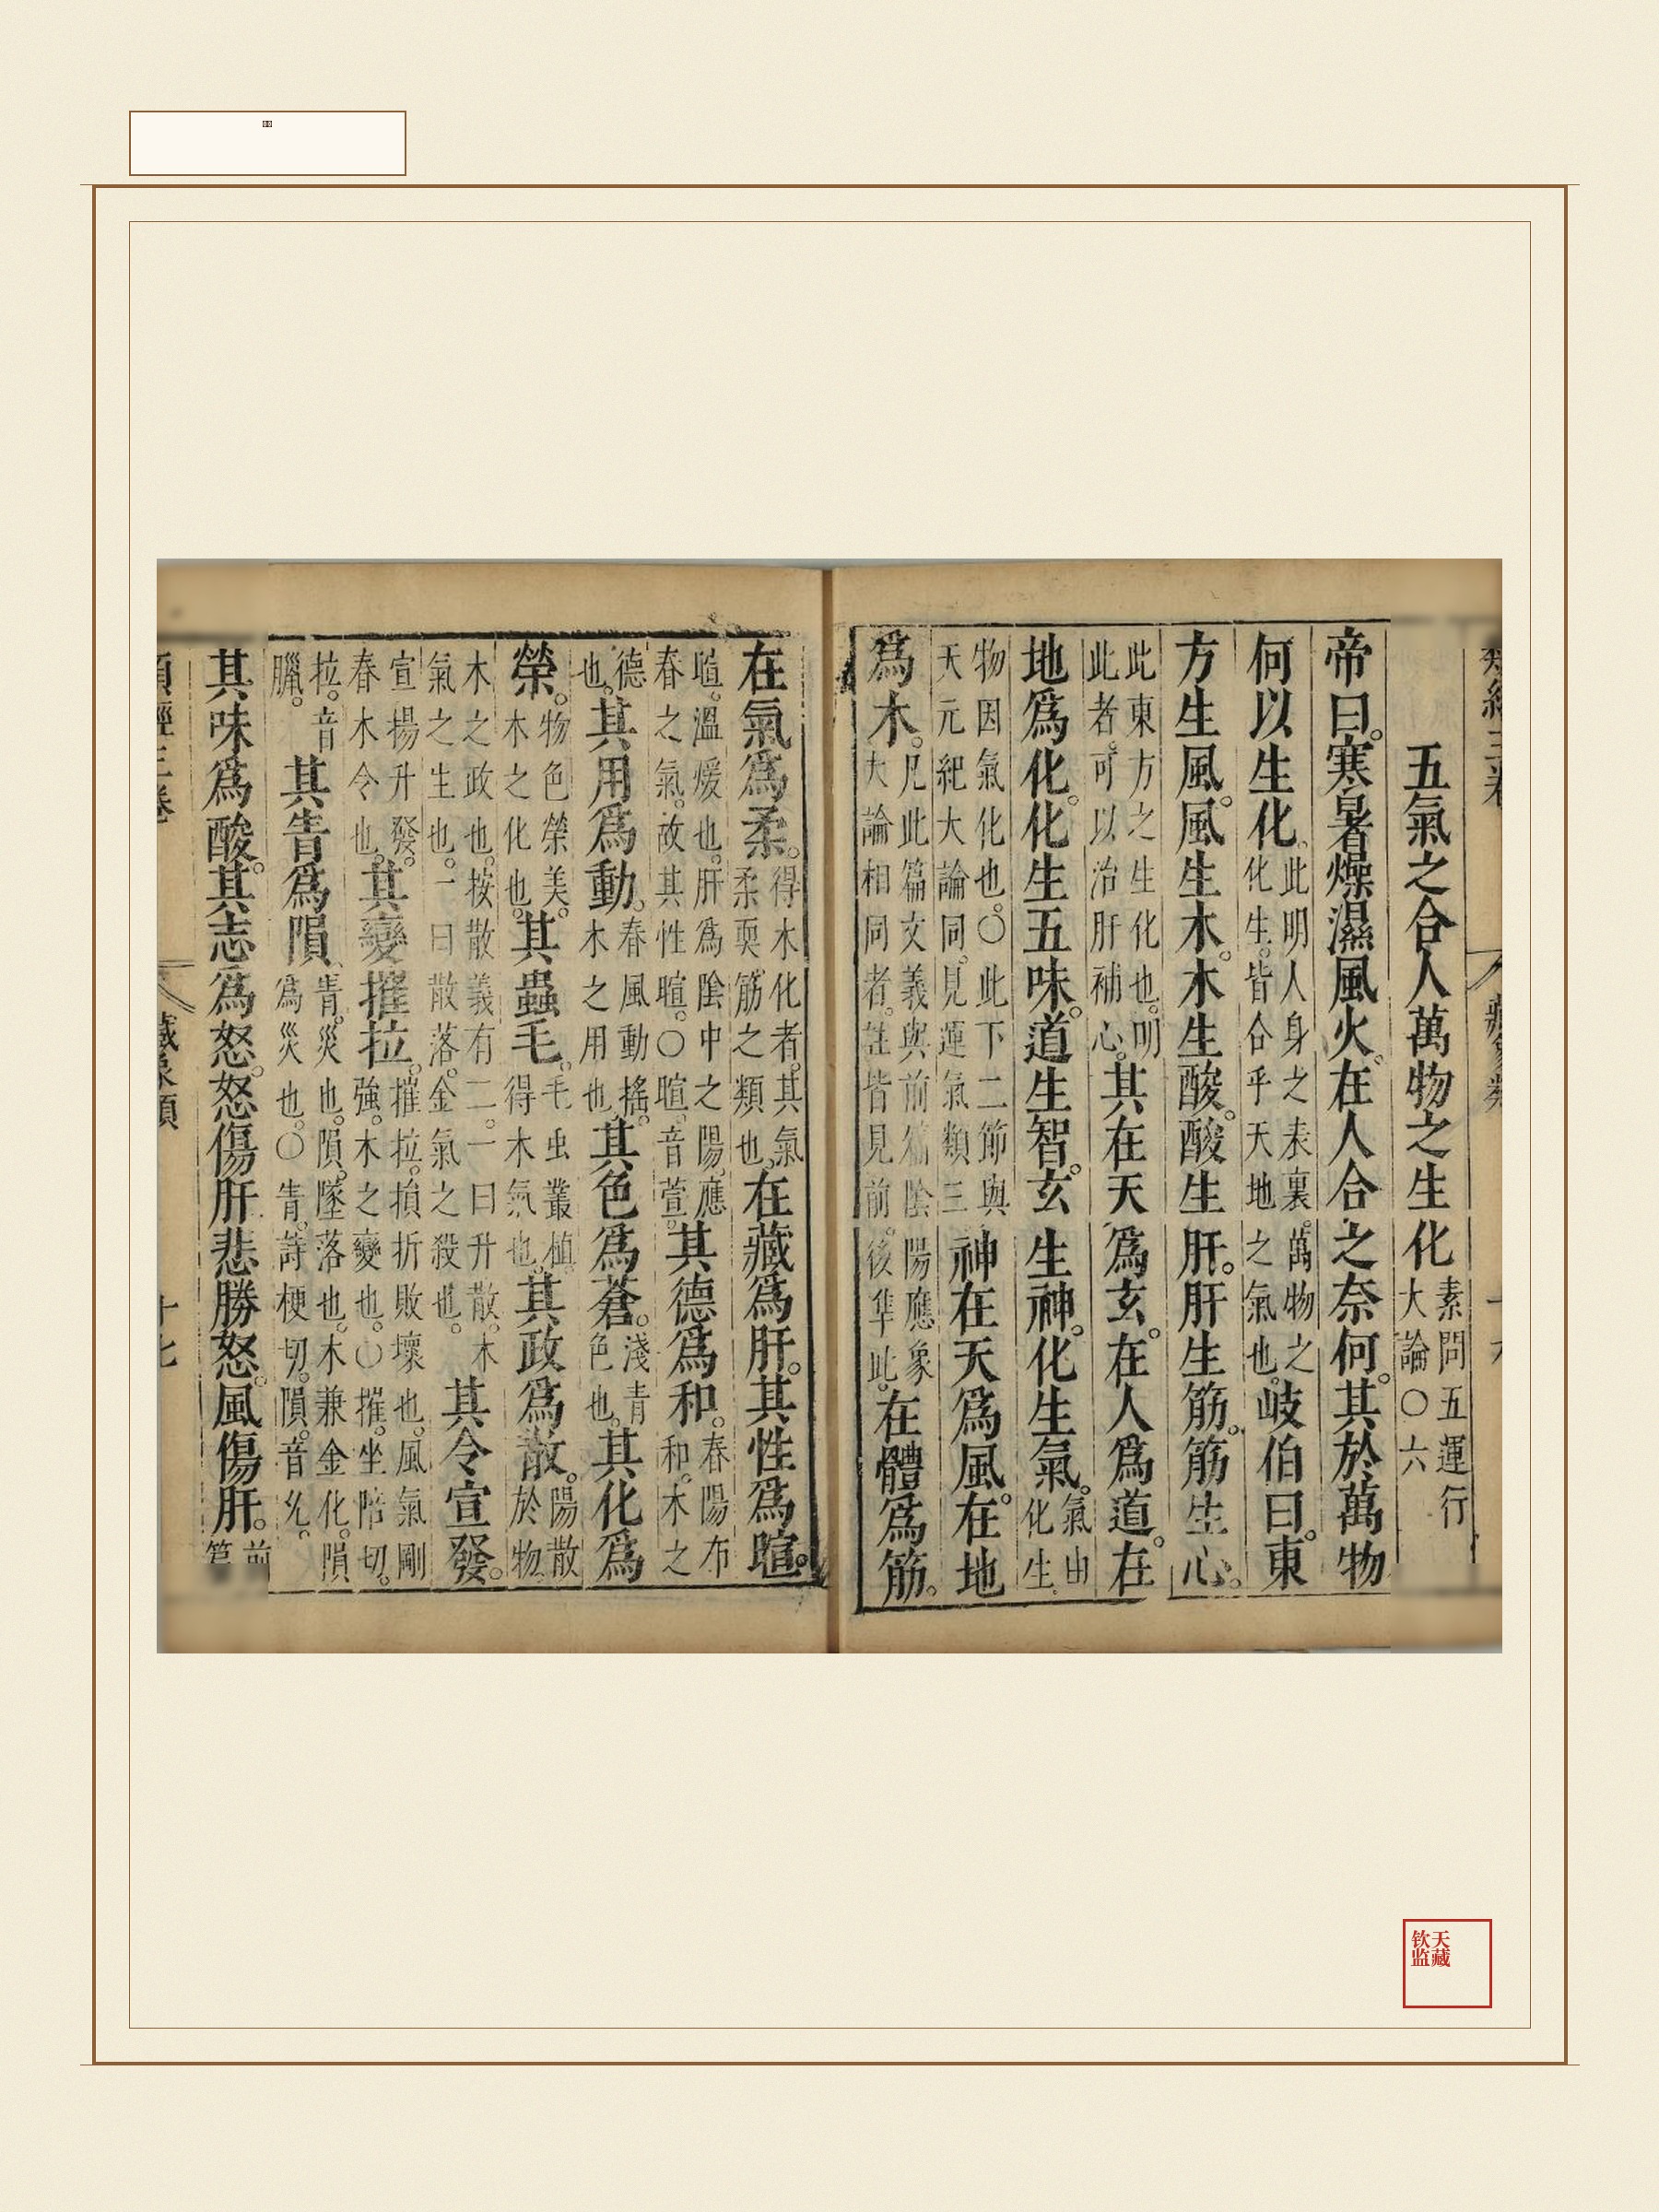 類經三卷 藏象類 十六
五氣之合人萬物之生化素問五運行大論〇六
帝曰。寒暑燥濕風火。在人合之奈何。其於萬物
何以生化。此明人身之表裏。萬物之化生。皆合乎天地之氣也。岐伯曰。東
方生風。風生木。木生酸。酸生肝。肝生筋。筋生心。
此東方之生化也。明此者。可以治肝補心。其在天爲玄。在人爲道。在
地爲化。化生五味。道生智。玄生神。化生氣。氣由化生
物因氣化也。〇此下二節與天元紀大論同。見運氣類三神在天爲風。在地
爲木。凡此篇文義與前篇陰陽應象大論相同者。註皆見前。後隼此。在體爲筋。
在氣爲柔。得木化者。其氣柔耎。筋之類也。在藏爲肝。其性爲暄。
暄。溫煖也。肝爲陰中之陽。應春之氣。故其性暄。〇暄。音萱。其德爲和。春陽布和。木之
德也。其用爲動。春風動搖。木之用也。其色爲蒼。淺青色也。其化爲
榮。物色榮美。木之化也。其蟲毛。毛虫叢植。得木氣也。其政爲散。陽散於物。
木之政也。按散義有二。一曰升散。木氣之生也。一曰散落。金氣之殺也。其令宣發。
宣揚升發。春木令也。其變摧拉。摧拉。損折敗壞也。風氣剛強。木之變也。〇摧。坐陪切。
拉。音臘。其眚爲隕。眚。災也。隕。墜落也。木兼金化。隕爲災也。〇眚。詩梗切。隕。音允。
其味爲酸。其志爲怒。怒傷肝。悲勝怒。風傷肝。前篇
類經三卷 藏象類 十七
钦天
监藏